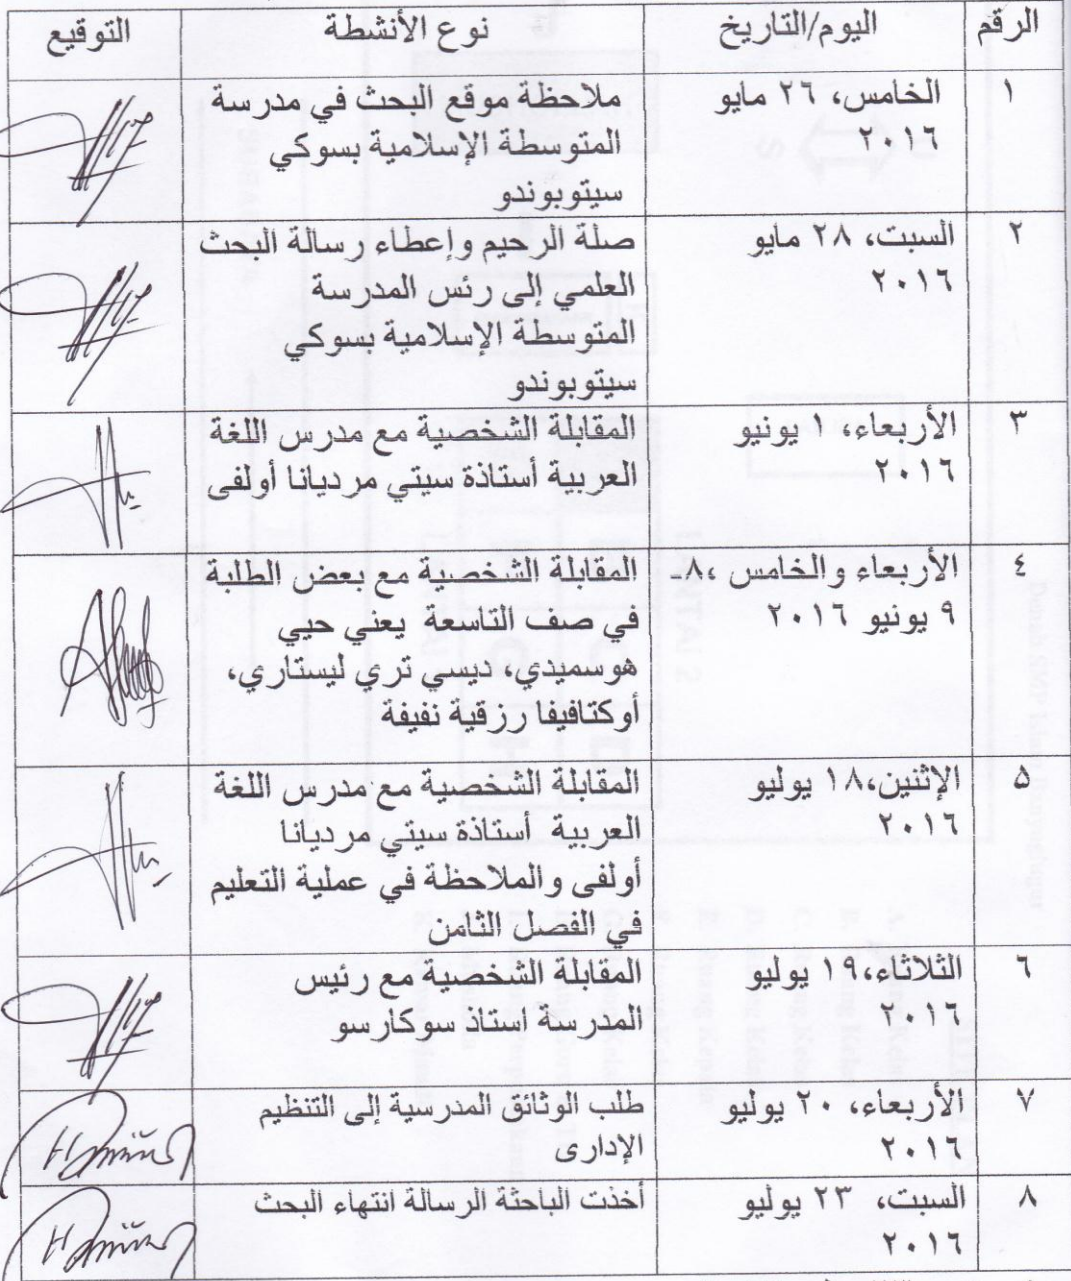 الرقم اليوم/التاريخ نوع الأنشطة التوقيع
١ الخامس، ٢٦ مايو ملاحظة موقع البحث في مدرسة
٢٠١٦ المتوسطة الإسلامية بسوكي
سيتوبوندو
٢ السبت، ٢٨ مايو صلة الرحيم وإعطاء رسالة البحث
٢٠١٦ العلمي إلى رئس المدرسة
المتوسطة الإسلامية بسوكي
سيتوبوندو
٣ الأربعاء، ١ يونيو المقابلة الشخصية مع مدرس اللغة
٢٠١٦ العربية أستاذة سيتي مرديانا أولفى
٤ الأربعاء والخامس ،٨- المقابلة الشخصية مع بعض الطلبة
٩ يونيو ٢٠١٦ في صف التاسعة يعني حيي
هوسميدي، ديسي تري ليستاري،
أوكتافيفا رزقية نفيفة
٥ الإثنين،١٨ يوليو المقابلة الشخصية مع مدرس اللغة
٢٠١٦ العربية أستاذة سيتي مرديانا
أولفى والملاحظة في عملية التعليم
في الفصل الثامن
٦ الثلاثاء،١٩ يوليو المقابلة الشخصية مع رئيس
٢٠١٦ المدرسة استاذ سوكارسو
٧ الأربعاء، ٢٠ يوليو طلب الوثائق المدرسية إلى التنظيم
٢٠١٦ الإدارى
٨ السبت، ٢٣ يوليو أخذت الباحثة الرسالة انتهاء البحث
٢٠١٦